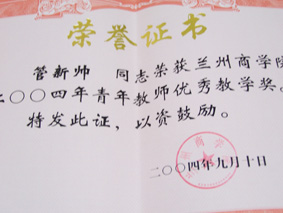 荣誉证书
管新帅 同志荣获兰州商学院
二〇〇四年青年教师优秀教学奖。
特发此证，以资鼓励。
二〇〇四年九月十日